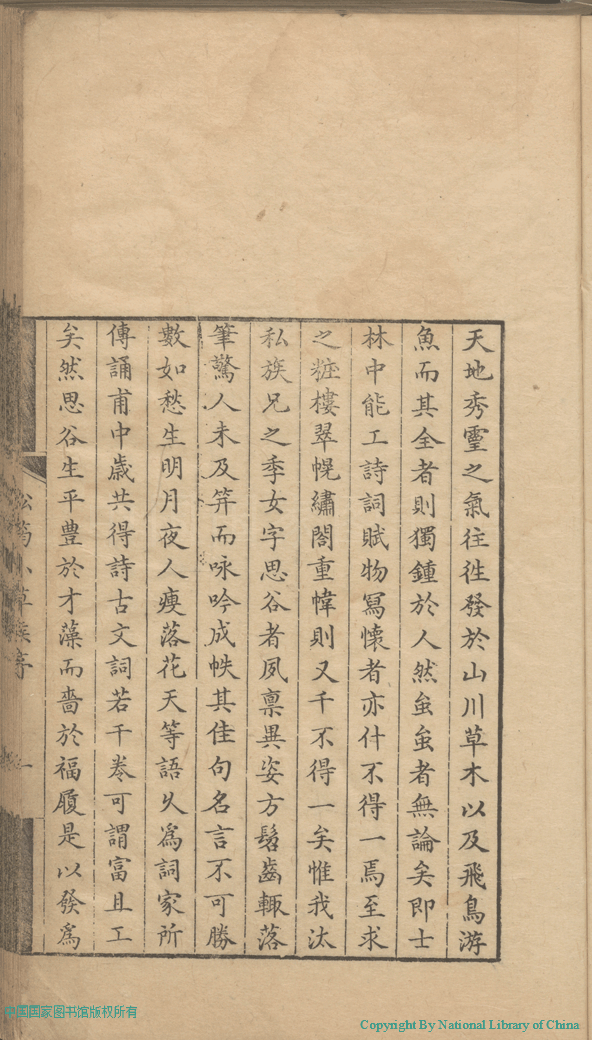 天地秀靈之氣往徃發於山川草木以及飛鳥游
魚而其全者則獨鍾於人然蚩蚩者無論矣即士
林中能工詩詞賦物冩懷者亦什不得一焉至求
之粧樓翠幌繡閣重幃則又千不得一矣惟我汰
私族兄之季女字思谷者夙禀異姿方髫齒輒落
筆驚人未及笄而咏吟成帙其佳句名言不可勝
數如愁生明月夜人瘦落花天等語久爲詞家所
傳誦甫中歲共得詩古文詞若干卷可謂富且工
矣然思谷生平豊於才藻而嗇於福履是以發爲
小草
序
一
中国国家图书馆版权所有
Copyright By National Library of China